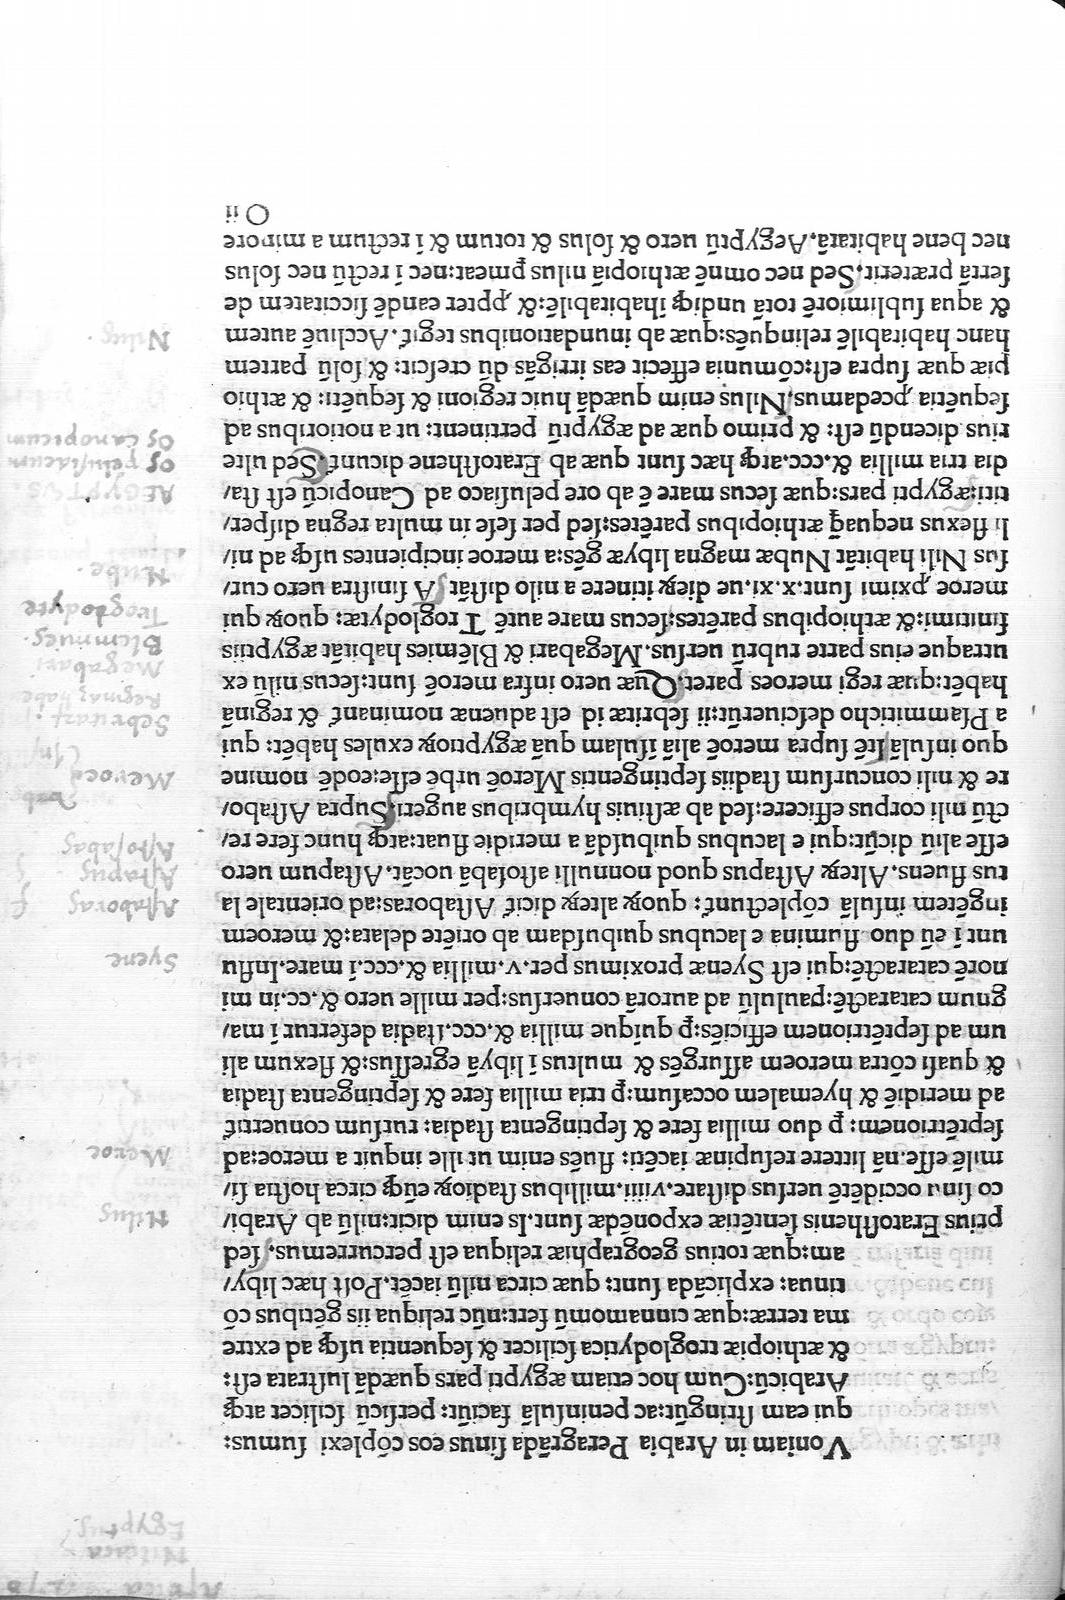 Voniam in Arabia Peragrãda sinus eos cõplexi sumus:
qui eam stringũt: ac peninsulã faciũt: persicũ scilicet atqȝ
Arabicũ: Cum hoc etiam ægypti pars quædã lustrata est:
& æthiopiæ troglodytica scilicet & sequentia usqȝ ad extre
ma terræ: quæ cinnamomũ fert: nũc reliqua iis gẽtibus cõ
tinua: explicãda sunt: quæ circa nilũ iacẽt. Post hæc liby/
am: quæ totius geographiæ reliqua est percurremus. sed
prius Eratosthenis sentẽtiæ exponẽdæ sunt. Is enim dicit: nilũ ab Arabi/
co sinu occidẽtẽ uersus distare. viiii. millibus stadioꝝ eũqȝ circa hostia si/
milẽ esse. nã littere resupinæ iacẽti: fluẽs enim ut ille inquit a meroe: ad
septẽtrionem: ꝑ duo millia fere & septingenta stadia: rursum conuertit̃
ad meridiẽ & hyemalem occasum: ꝑ tria millia fere & septingenta stadia
& quasi cõtra meroem assurgẽs & multus ĩ libyã egressus: & flexum ali
um ad septẽtrionem efficiẽs: ꝑ quĩque millia & .ccc. stadia defertur ĩ ma/
gnum cataractẽ: paululũ ad aurorã conuersus: per mille uero & .cc. in mi
norẽ cataractẽ: qui est Syenæ proximus per .v. millia & .ccc. ĩ mare. Influ
unt ĩ eũ duo flumina e lacubus quibusdam ab oriẽte delata: & meroem
ingẽtem insulã cõplectunt̃: quoꝝ alteꝝ dicit̃ Astaboras: ad orientale la
tus fluens. Alteꝝ Astapus quod nonnulli astosabã uocãt. Astapum uero
esse aliũ dicũt: qui e lacubus quibusdã a meridie fluat: atqȝ hunc fere re/
ctũ nili corpus efficere: sed ab æstiuis hymbribus augeri. Supra Astabo/
re & nili concursum stadiis septingentis Meroẽ urbẽ esse: eodẽ nomine
quo insulã. ste supra meroẽ aliã ĩsulam quã ægyptioꝝ exules habẽt: qui
a Psammiticho desciuerũt: ii sebritæ id est aduenæ nominant̃ & reginã
habẽt: quæ regi meroes paret. Quæ uero infra meroẽ sunt: secus nilũ ex
utraque eius parte rubrũ uersus. Megabari & Blẽmies habitãt ægyptiis
finitimi: & æthiopibus parẽtes: secus mare autẽ Troglodytæ: quoꝝ qui
meroe ꝓximi sunt .x. xi. ue dieꝝ itinere a nilo distãt. A sinistra uero cur/
sus Nili habitãt Nubæ magna libyæ gẽs: a meroe incipientes usqȝ ad ni/
li flexus nequaqȝ æthiopibus parẽtes: sed per sese in multa regna disper/
titi: ægypti pars: quæ secus mare ẽ ab ore pelusiaco ad Canopicũ est sta/
dia tria millia & .ccc. atqȝ hæc sunt quæ ab Eratosthene dicunt̃. Sed ulte
rius dicendũ est: & primo quæ ad ægyptũ pertinent: ut a notioribus ad
sequẽtia ꝓcedamus. Nilus enim quædã huic regioni & sequẽti: & æthio
piæ quæ supra est: cõmunia effecit eas irrigãs dũ crescit: & solũ partem
hanc habitabilẽ relinquẽs: quæ ab inundationibus tegit̃. Accliuẽ autem
& aqua sublimiorẽ totã undiqȝ ĩhabitabilẽ: & ꝓpter eandẽ siccitatem de
sertã præterit. Sed nec omnẽ æthiopiã nilus ꝑmeat: nec ĩ rectũ nec solus
nec bene habitatã. Aegyptũ uero & solus & totum & ĩ rectum a minore
O ii
Egyptus
Nilus
Meroe
Syene
Astaboras
Astapus
Astosabas
Meroes
Megabari
Blemmues.
Troglodyte
Nubæ.
AEGYPTVS.
Os pelusiacum
Os canopicum
Nilus.